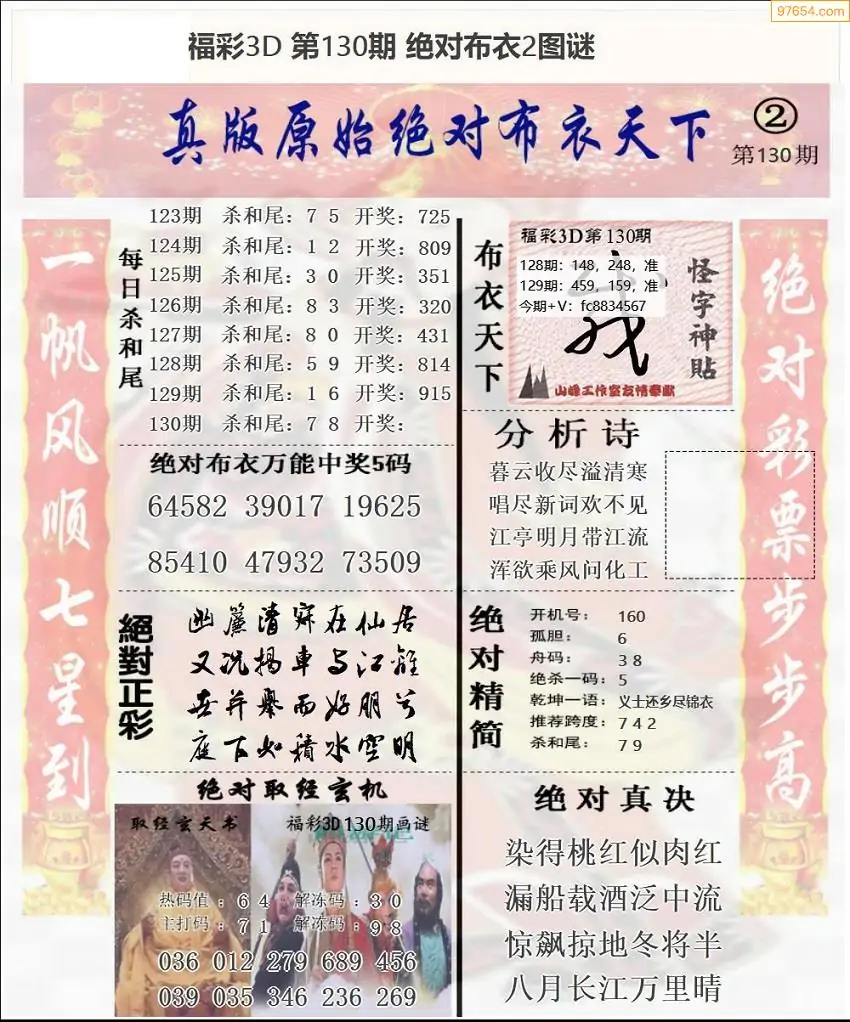 97654.com
福彩3D 第130期 绝对布衣2图谜
真版原始绝对布衣天下
②
第130期
一帆风顺七星到
每日杀和尾
123期 杀和尾：7 5 开奖：725
124期 杀和尾：1 2 开奖：809
125期 杀和尾：3 0 开奖：351
126期 杀和尾：8 3 开奖：320
127期 杀和尾：8 0 开奖：431
128期 杀和尾：5 9 开奖：814
129期 杀和尾：1 6 开奖：915
130期 杀和尾：7 8 开奖：
绝对布衣万能中奖5码
64582 39017 19625
85410 47932 73509
絕對正彩
幽簾清寂在仙居
又况揭車与江離
世并舉而好朋兮
庭下如積水空明
绝对取经玄机
取经玄天书
福彩3D130期画谜
热码值：6 4 解冻码：3 0
主打码：7 1 解冻码：9 8
036 012 279 689 456
039 035 346 236 269
布衣天下
福彩3D第130期
128期：148，248，准
129期：459，159，准
今期+V：fc8834567
怪字神貼
山峰工作室友情奉献
分析诗
暮云收尽溢清寒
唱尽新词欢不见
江亭明月带江流
浑欲乘风问化工
绝对精简
开机号： 160
孤胆： 6
舟码： 3 8
绝杀一码：5
乾坤一语：义士还乡尽锦衣
推荐跨度：7 4 2
杀和尾： 7 9
绝对真决
染得桃红似肉红
漏船载酒泛中流
惊飙掠地冬将半
八月长江万里晴
绝对彩票步步高